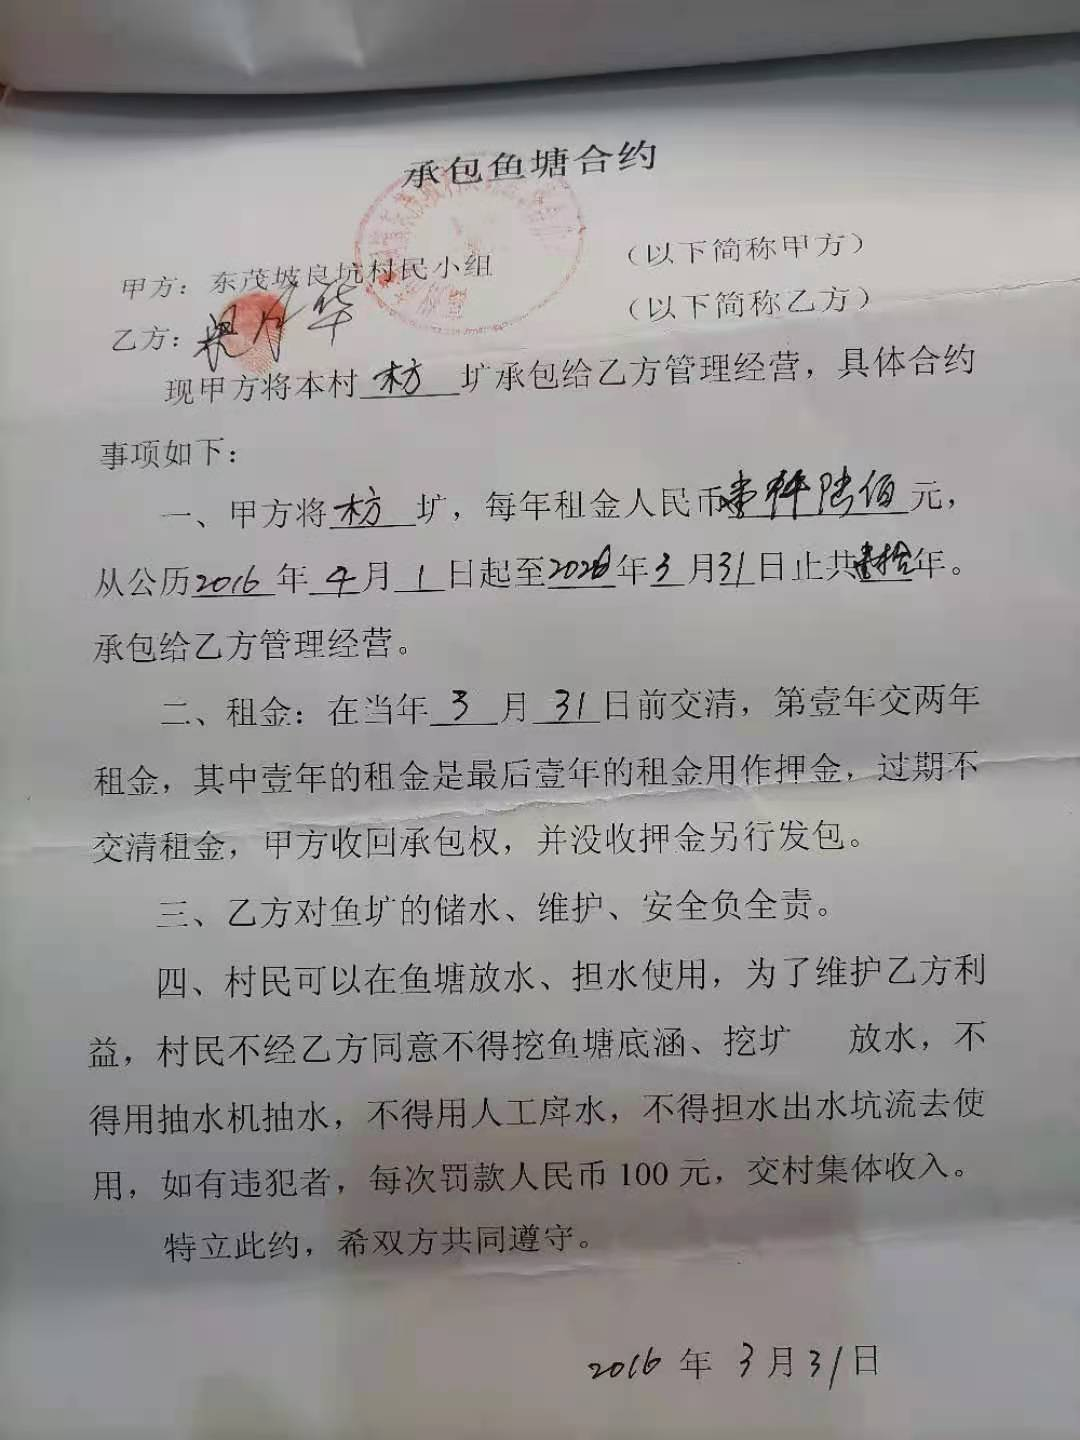 承包鱼塘合约
甲方：东茂坡良坑村民小组 （以下简称甲方）
乙方： 华 （以下简称乙方）
现甲方将本村枋圹承包给乙方管理经营，具体合约
事项如下：
一、甲方将枋圹，每年租金人民币壹仟陆佰元，
从公历2016年4月1日起至2026年3月31日止共壹拾年。
承包给乙方管理经营。
二、租金：在当年3月31日前交清，第壹年交两年
租金，其中壹年的租金是最后壹年的租金用作押金，过期不
交清租金，甲方收回承包权，并没收押金另行发包。
三、乙方对鱼圹的储水、维护、安全负全责。
四、村民可以在鱼塘放水、担水使用，为了维护乙方利
益，村民不经乙方同意不得挖鱼塘底涵、挖圹 放水，不
得用抽水机抽水，不得用人工戽水，不得担水出水坑流去使
用，如有违犯者，每次罚款人民币100元，交村集体收入。
特立此约，希双方共同遵守。
2016年3月31日